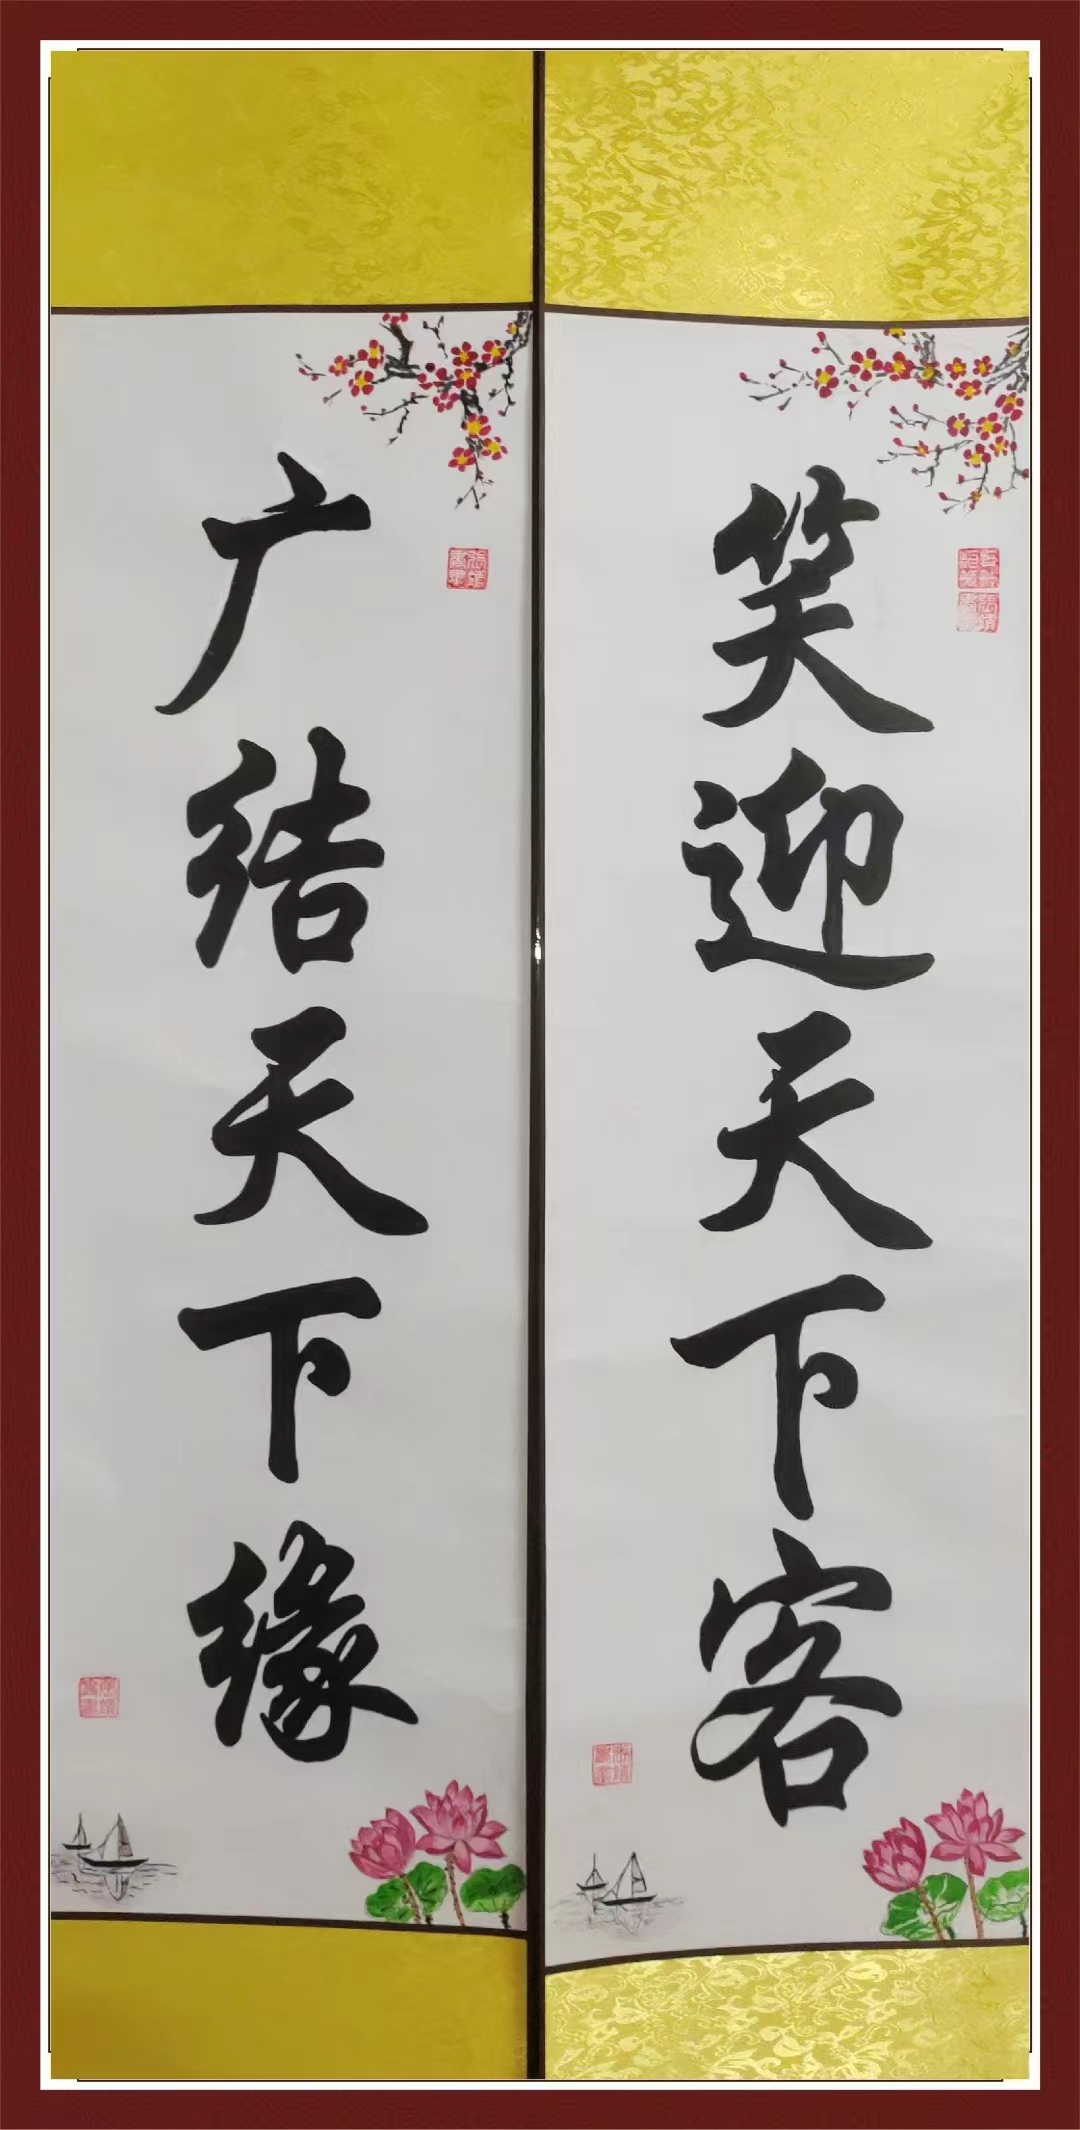 笑迎天下客
广结天下缘